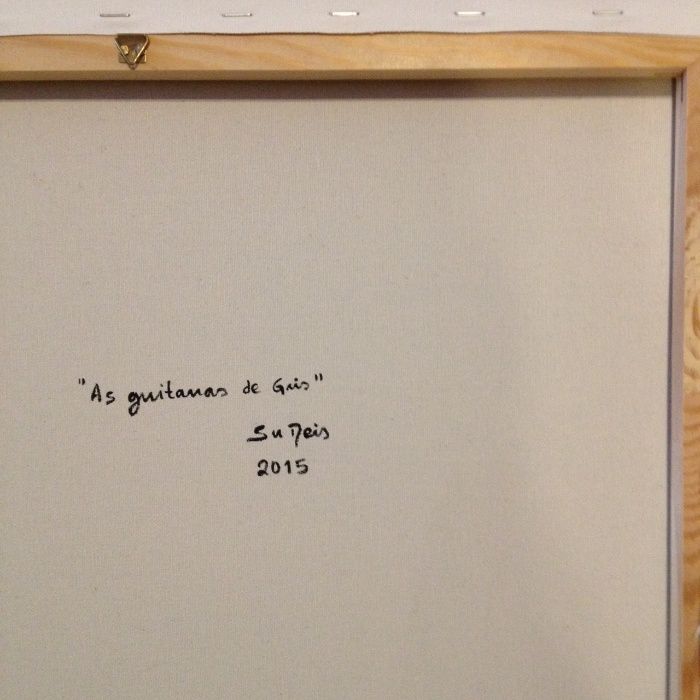 "As guitanas de Gris"
Su Reis
2015